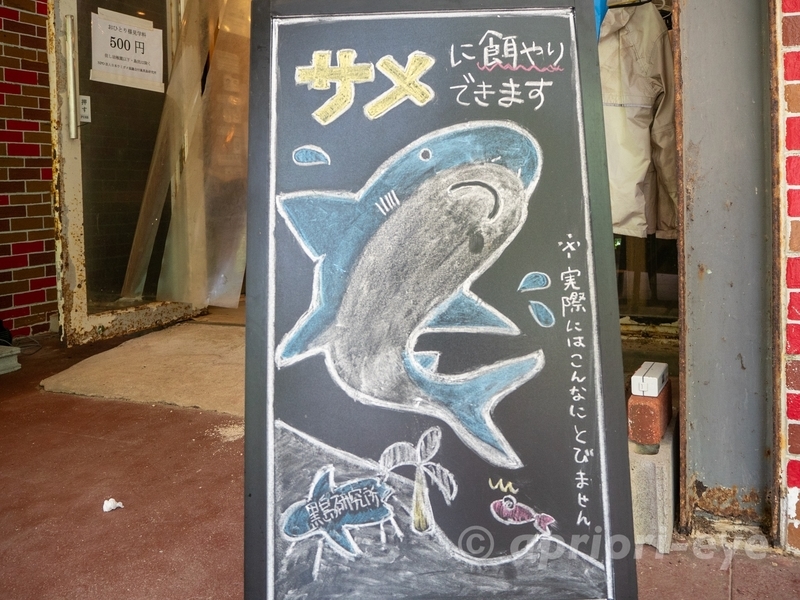 おひとり様見学料
500円
押す
サメに餌やり
できます
※実際にはこんなにとびません
黒島研究所
© apriori-eye